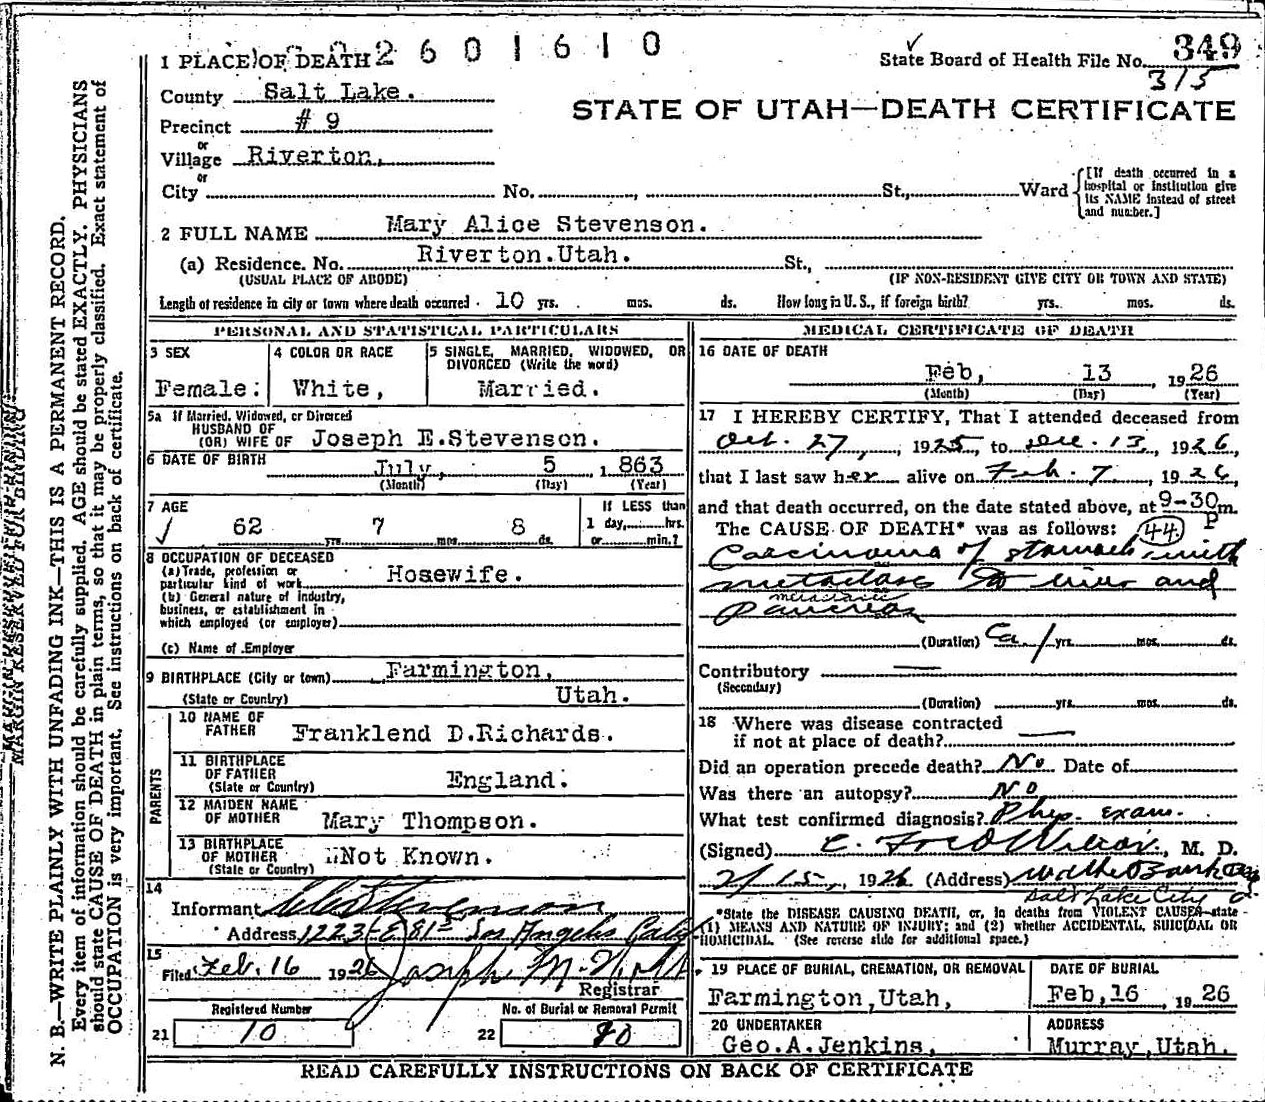 2601610
1 PLACE OF DEATH
State Board of Health File No. 349
315
County Salt Lake.
STATE OF UTAH—DEATH CERTIFICATE
Precinct # 9
or
Village Riverton,
or
City No. , St., Ward
[If death occurred in a hospital or institution give its NAME instead of street and number.]
2 FULL NAME Mary Alice Stevenson.
(a) Residence. No. Riverton.Utah. St.,
(USUAL PLACE OF ABODE) (IF NON-RESIDENT GIVE CITY OR TOWN AND STATE)
Length of residence in city or town where death occurred 10 yrs. mos. ds. How long in U. S., if foreign birth? yrs. mos. ds.
PERSONAL AND STATISTICAL PARTICULARS
3 SEX
Female.
4 COLOR OR RACE
White,
5 SINGLE, MARRIED, WIDOWED, OR
DIVORCED (Write the word)
Married.
5a If Married, Widowed, or Divorced
HUSBAND OF
(OR) WIFE OF Joseph E.Stevenson.
6 DATE OF BIRTH July, 5 1863
(Month) (Day) (Year)
7 AGE
62 yrs. 7 mos. 8 ds.
If LESS than
1 day, hrs.
or min.?
8 OCCUPATION OF DECEASED
(a) Trade, profession or
particular kind of work Hosewife.
(b) General nature of industry,
business, or establishment in
which employed (or employer)
(c) Name of Employer
9 BIRTHPLACE (City or town) Farmington,
(State or Country) Utah.
PARENTS
10 NAME OF
FATHER Franklend D.Richards.
11 BIRTHPLACE
OF FATHER
(State or Country) England.
12 MAIDEN NAME
OF MOTHER Mary Thompson.
13 BIRTHPLACE
OF MOTHER Not Known.
(State or Country)
14
Informant Stevenson
Address 1223-E 81st Los Angeles
15
Filed Feb. 16 1926 Joseph M.
Registrar
Registered Number
21 10
No. of Burial or Removal Permit
22 80
MEDICAL CERTIFICATE OF DEATH
16 DATE OF DEATH
Feb, 13, 1926
(Month) (Day) (Year)
17 I HEREBY CERTIFY, That I attended deceased from
Oct. 27, 1925 to Dec. 13, 1926,
that I last saw her alive on Feb. 7, 1926,
and that death occurred, on the date stated above, at 9-30 P m.
The CAUSE OF DEATH* was as follows: 44
Carcinoma of stomach with
metastases to liver and
metastatic
Pancreas
(Duration) Ca. 1 yrs. mos. ds.
Contributory
(Secondary)
(Duration) yrs. mos. ds.
18 Where was disease contracted
if not at place of death?
Did an operation precede death? No Date of
Was there an autopsy? No
What test confirmed diagnosis? Phys. exam.
(Signed) M. D.
2/15, 1926 (Address) Walker Bank Bldg
Salt Lake City
*State the DISEASE CAUSING DEATH, or, in deaths from VIOLENT CAUSES state
(1) MEANS AND NATURE OF INJURY; and (2) whether ACCIDENTAL, SUICIDAL OR
HOMICIDAL. (See reverse side for additional space.)
19 PLACE OF BURIAL, CREMATION, OR REMOVAL
Farmington,Utah,
DATE OF BURIAL
Feb,16, 1926
20 UNDERTAKER
Geo.A.Jenkins,
ADDRESS
Murray,Utah.
READ CAREFULLY INSTRUCTIONS ON BACK OF CERTIFICATE
MARGIN RESERVED FOR BINDING
N. B.—WRITE PLAINLY WITH UNFADING INK—THIS IS A PERMANENT RECORD.
Every item of information should be carefully supplied. AGE should be stated EXACTLY. PHYSICIANS
should state CAUSE OF DEATH in plain terms, so that it may be properly classified. Exact statement of
OCCUPATION is very important. See instructions on back of certificate.